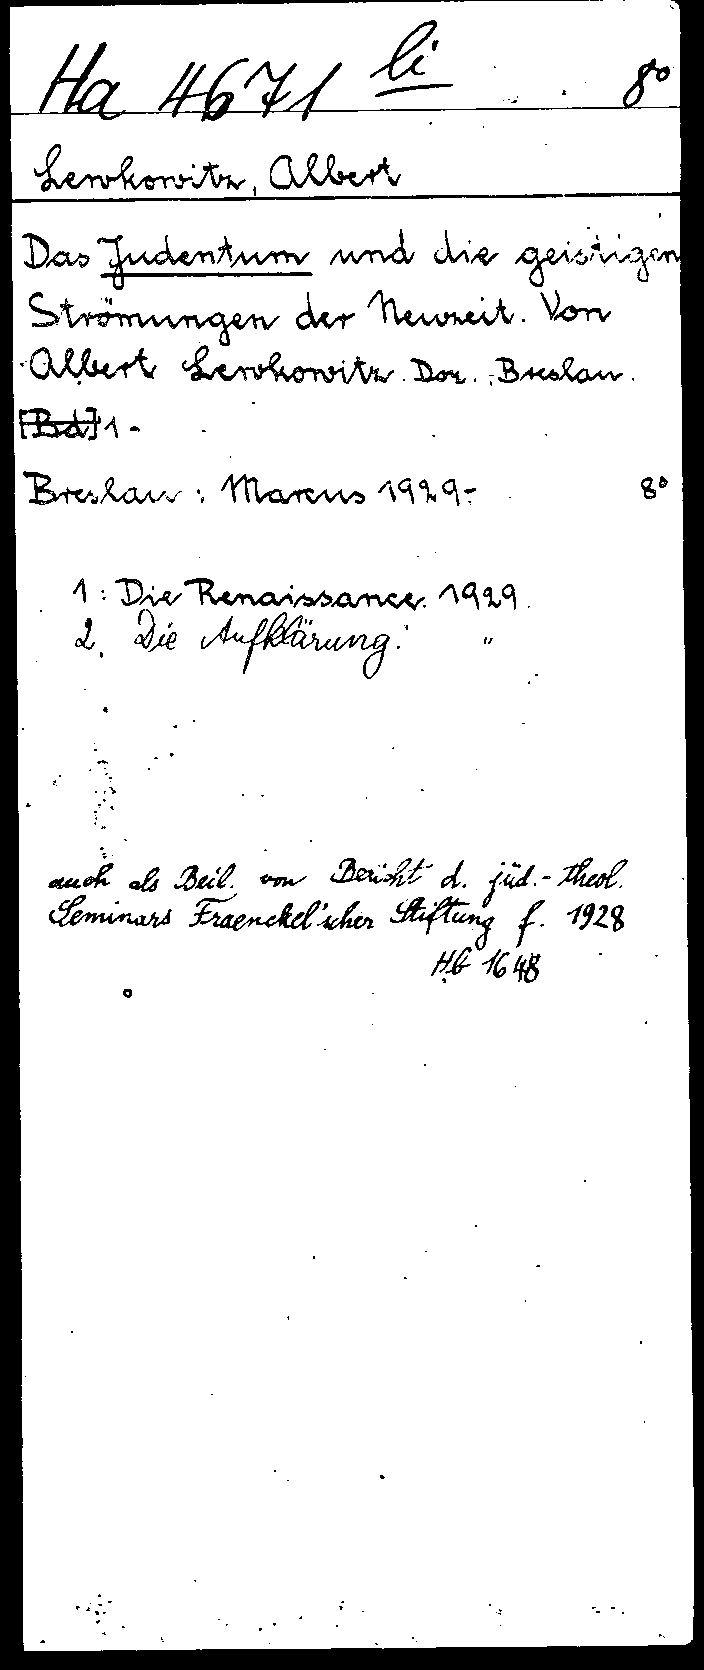 Ha 4671 li 8°
Lewkowitz, Albert
Das Judentum und die geistigen
Strömungen der Neuzeit. Von
Albert Lewkowitz. Doz. Breslau.
[Bd] 1-
Breslau: Marcus 1929- 8°
1: Die Renaissance. 1929.
2. Die Aufklärung. "
auch als Beil. von Bericht d. jüd.-theol.
Seminars Fraenckel'scher Stiftung f. 1928
Hb 1648